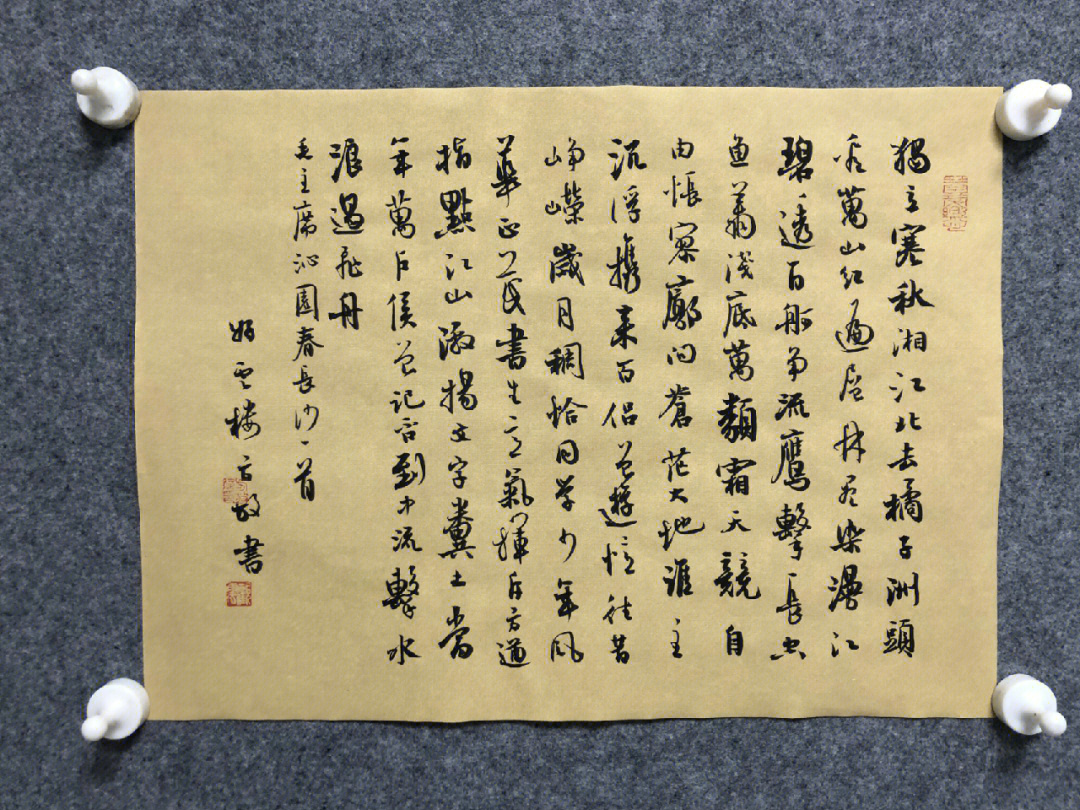 獨立寒秋湘江北去橘子洲頭
看萬山红遍層林盡染漫江
碧透百舸争流鷹擊長空
魚翔淺底萬類霜天競自
由悵寥廓问蒼茫大地誰主
沉浮攜來百侣曾遊憶往昔
峥嶸歲月稠恰同學少年風
華正茂書生意氣揮斥方遒
指點江山激揚文字糞土當
年萬户侯曾記否到中流擊水
浪遏飛舟
毛主席沁園春長沙一首
雲樓敬書